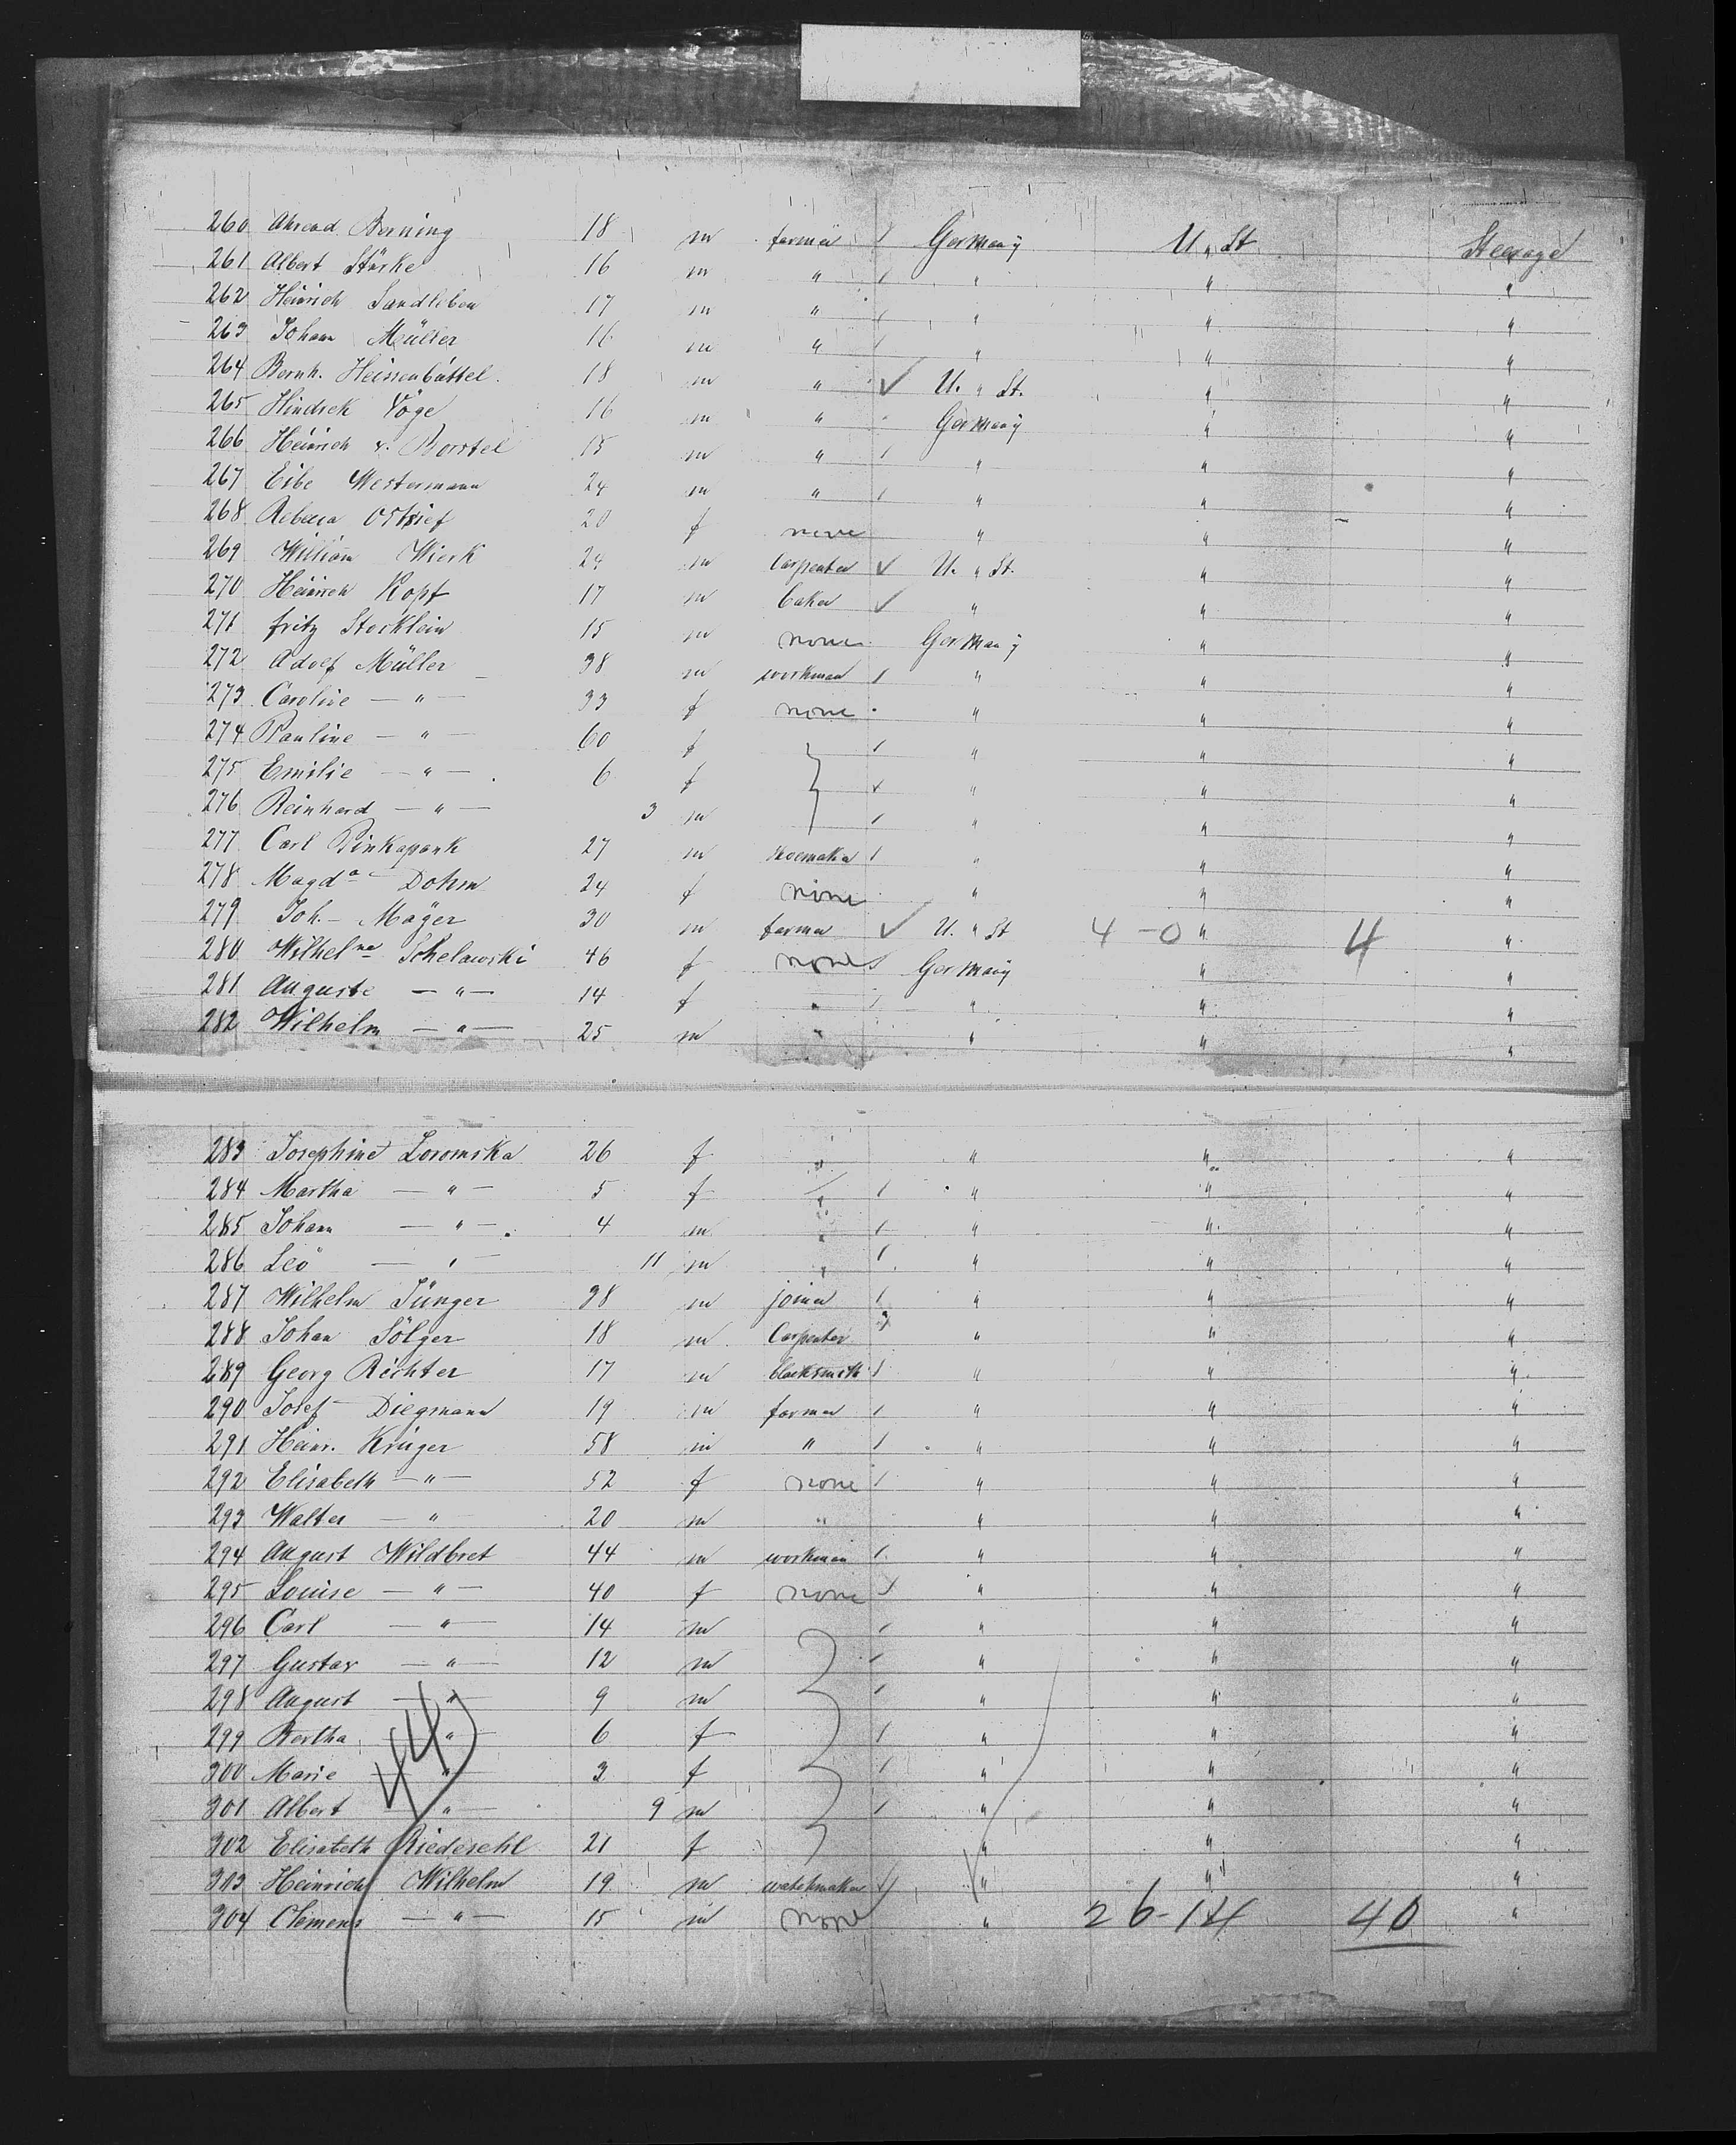 260 Ahrend Berning 18 m farmer / Germany U. St Steerage
261 Albert Stürke 16 m " / " " "
262 Heinrich Sandleben 17 m " / " " "
263 Johann Müller 16 m " / " " "
264 Bernh. Heissenbüttel. 18 m " ✓ U. " St. " "
265 Hindrek Vöge 16 m " Germany " "
266 Heinrich v. Borstel 15 m " / " " "
267 Eibe Westermann 24 m " / " " "
268 Rebecca 20 f none " " "
269 William Wierk 24 m Carpenter ✓ U. " St. " "
270 Heinrich Kopf 17 m baker ✓ " " "
271 Fritz Stocklein 15 m none Germany " "
272 Adolf Müller 38 m workman / " " "
273 Caroline — " — 33 f none " " "
274 Pauline — " — 60 f / " " "
275 Emilie — " — 6 f " " "
276 Reinhard — " — 3 m / " " "
277 Carl Pinkapank 27 m shoemaker / " " "
278 Magda Dohm 24 f none " " "
279 Joh. Mayer 30 m farmer ✓ U. " St 4 - 0 " 4 "
280 Wilhelne Schelawski 46 f none Germany " "
281 Auguste — " — 14 f " / " " "
282 Wilhelm — " — 25 m " " " "
283 Josephine Loromska 26 f " " " "
284 Martha — " — 5 f " / " " "
285 Johann — " — 4 m " / " " "
286 Leo — " — 11 m " / " " "
287 Wilhelm Jünger 38 m joiner / " " "
288 Johan Sölger 18 m Carpenter " " "
289 Georg Richter 17 m blacksmith / " " "
290 Josef Diegmann 19 m farmer / " " "
291 Heinr. Krüger 58 m " / " " "
292 Elisabeth — " — 52 f none / " " "
293 Walter — " — 20 m " " " "
294 August Wildbret 44 m workman / " " "
295 Louise — " — 40 f none " " "
296 Carl — " — 14 m / " " "
297 Gustav — " — 12 m / " " "
298 August — " — 9 m / " " "
299 Bertha " — 6 f / " " "
300 Marie " 3 f / " " "
44
301 Albert " — 9 m / " " "
302 Elisabeth Riedesehl 21 f " " "
303 Heinrich Wilhelm 19 m watchmaker / " " "
304 Clemens — " — 15 m none " 26-14 40 "